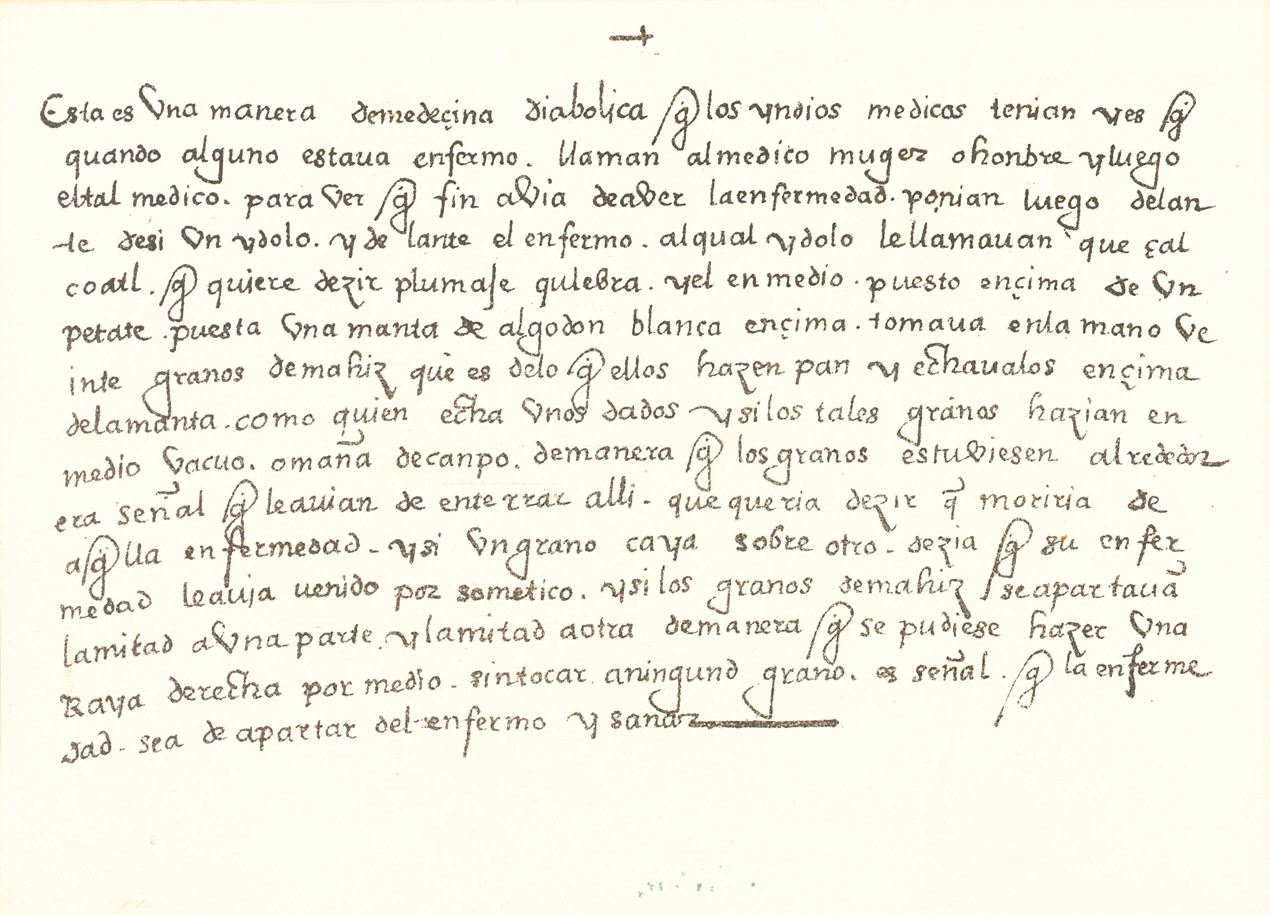 Esta es Vna manera demedeçina diabolica q̃ los yndios medicos tenian y es q̃
quando alguno estaua enfermo. llaman almedico muger o honbre y luego
el tal medico. para ver q̃ fin aVia deaVer la enfermedad. ponian luego delan
te desi Vn ydolo. y de lante el enfermo. alqual ydolo le llamauan que çal
coatl. q̃ quiere dezir plumaje qulebra. y el en medio. puesto ençima de Vn
petate. puesta Vna manta de algodon blanca ençima. tomaua enla mano Ve
inte granos demahiz que es delo q̃ ellos hazen pan y echaualos ençima
delamanta. como quien echa Vnos dados y si los tales granos hazian en
medio Vacuo. o mañа decanpo. demanera q̃ los granos estuViesen alrededor
era señal q̃ le auian de enterrar alli. que queria dezir q̃ moriria de
aq̃lla enfermedad. y si Vn grano caya sobre otro. dezia q̃ su enfer
medad leauja uenido por sometico. y si los granos demahiz se apartauã
la mitad aVna parte y la mitad a otra demanera q̃ se pudiese hazer Vna
Raya derecha por medio. sin tocar aningund grano. es señal. q̃ la enferme
dad. sea de apartar del enfermo y sanar